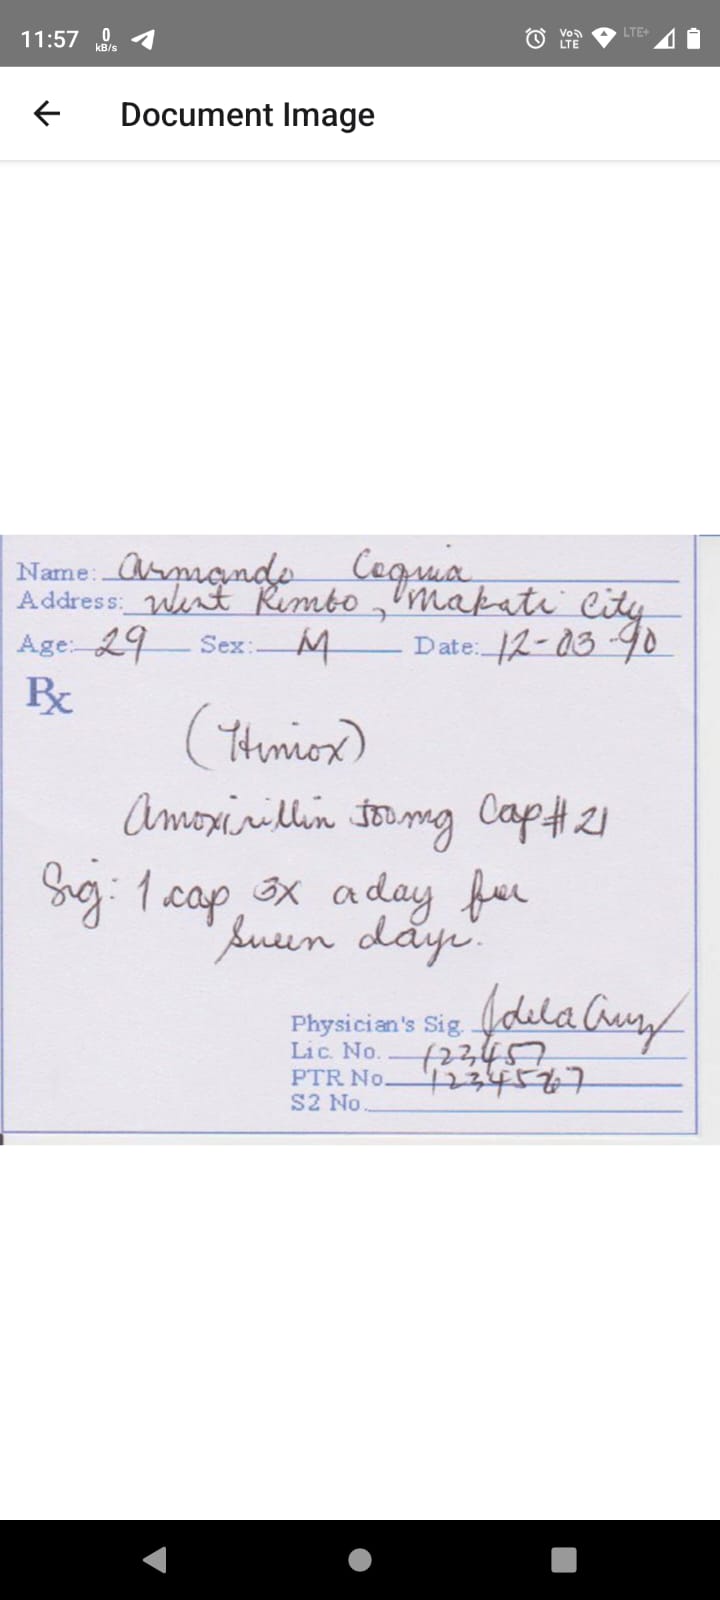 11:57 0 kB/s Vo LTE LTE+
Document Image
Name: Armando Coquia
Address: West Rembo, Makati City
Age: 29 Sex: M Date: 12-03-90
Rx
(Himox)
Amoxicillin 500mg Cap # 21
Sig: 1 cap 3x a day for
seven days.
Physician's Sig. Jdela Cruz
Lic. No. 123457
PTR No. 1234567
S2 No.